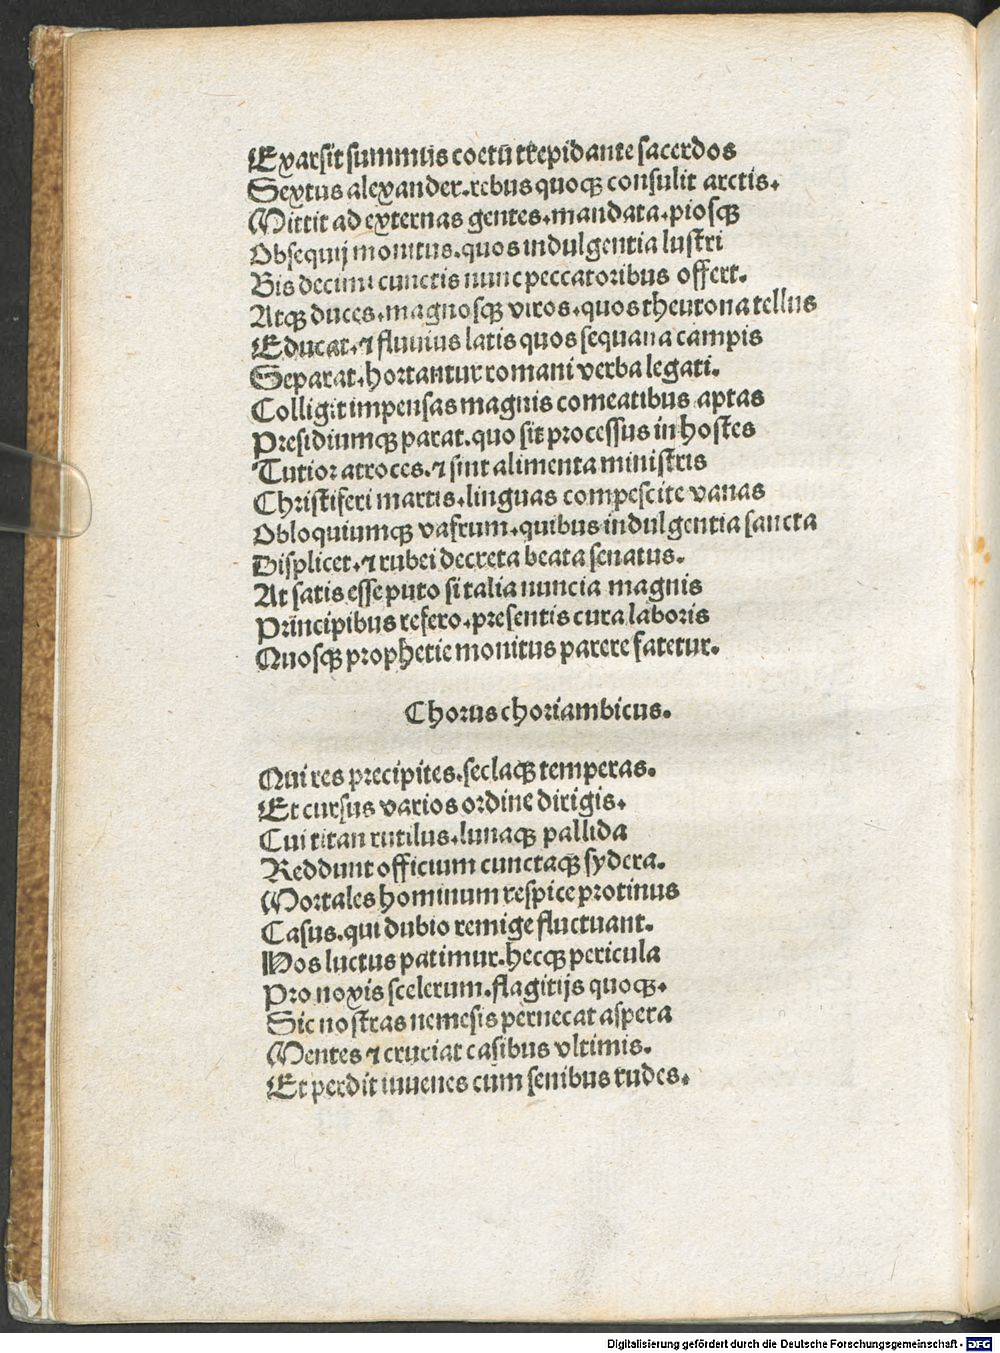 Exarsit summus coetū trepidante sacerdos
Sextus alexander.rebus quoqꝫ consulit arctis.
Mittit ad externas gentes.mandata.piosqꝫ
Obsequij monitus.quos indulgentia lustri
Bis decimi cunctis nunc peccatoribus offert.
Atqꝫ duces.magnosqꝫ viros.quos theutona tellus
Educat.⁊ fluuius latis quos sequana campis
Separat.hortantur romani verba legati.
Colligit impensas magnis comeatibus aptas
Presidiumqꝫ parat.quo sit processus in hostes
Tutior atroces.⁊ sint alimenta ministris
Christiferi martis.linguas compescite vanas
Obloquiumqꝫ vafrum.quibus indulgentia sancta
Displicet.⁊ rubei decreta beata senatus.
At satis esse puto si talia nuncia magnis
Principibus refero.presentis cura laboris
Quosqꝫ prophetie monitus parere fatetur.
Chorus choriambicus.
Qui res precipites.seclaqꝫ temperas.
Et cursus varios ordine dirigis.
Cui titan rutilus.lunaqꝫ pallida
Reddunt officium cunctaqꝫ sydera.
Mortales hominum respice protinus
Casus.qui dubio remige fluctuant.
Nos luctus patimur.hecqꝫ pericula
Pro noxis scelerum.flagitijs quoqꝫ.
Sic nostras nemesis pernecat aspera
Mentes ⁊ cruciat casibus vltimis.
Et perdit iuuenes cum senibus rudes.
Digitalisierung gefördert durch die Deutsche Forschungsgemeinschaft - DFG